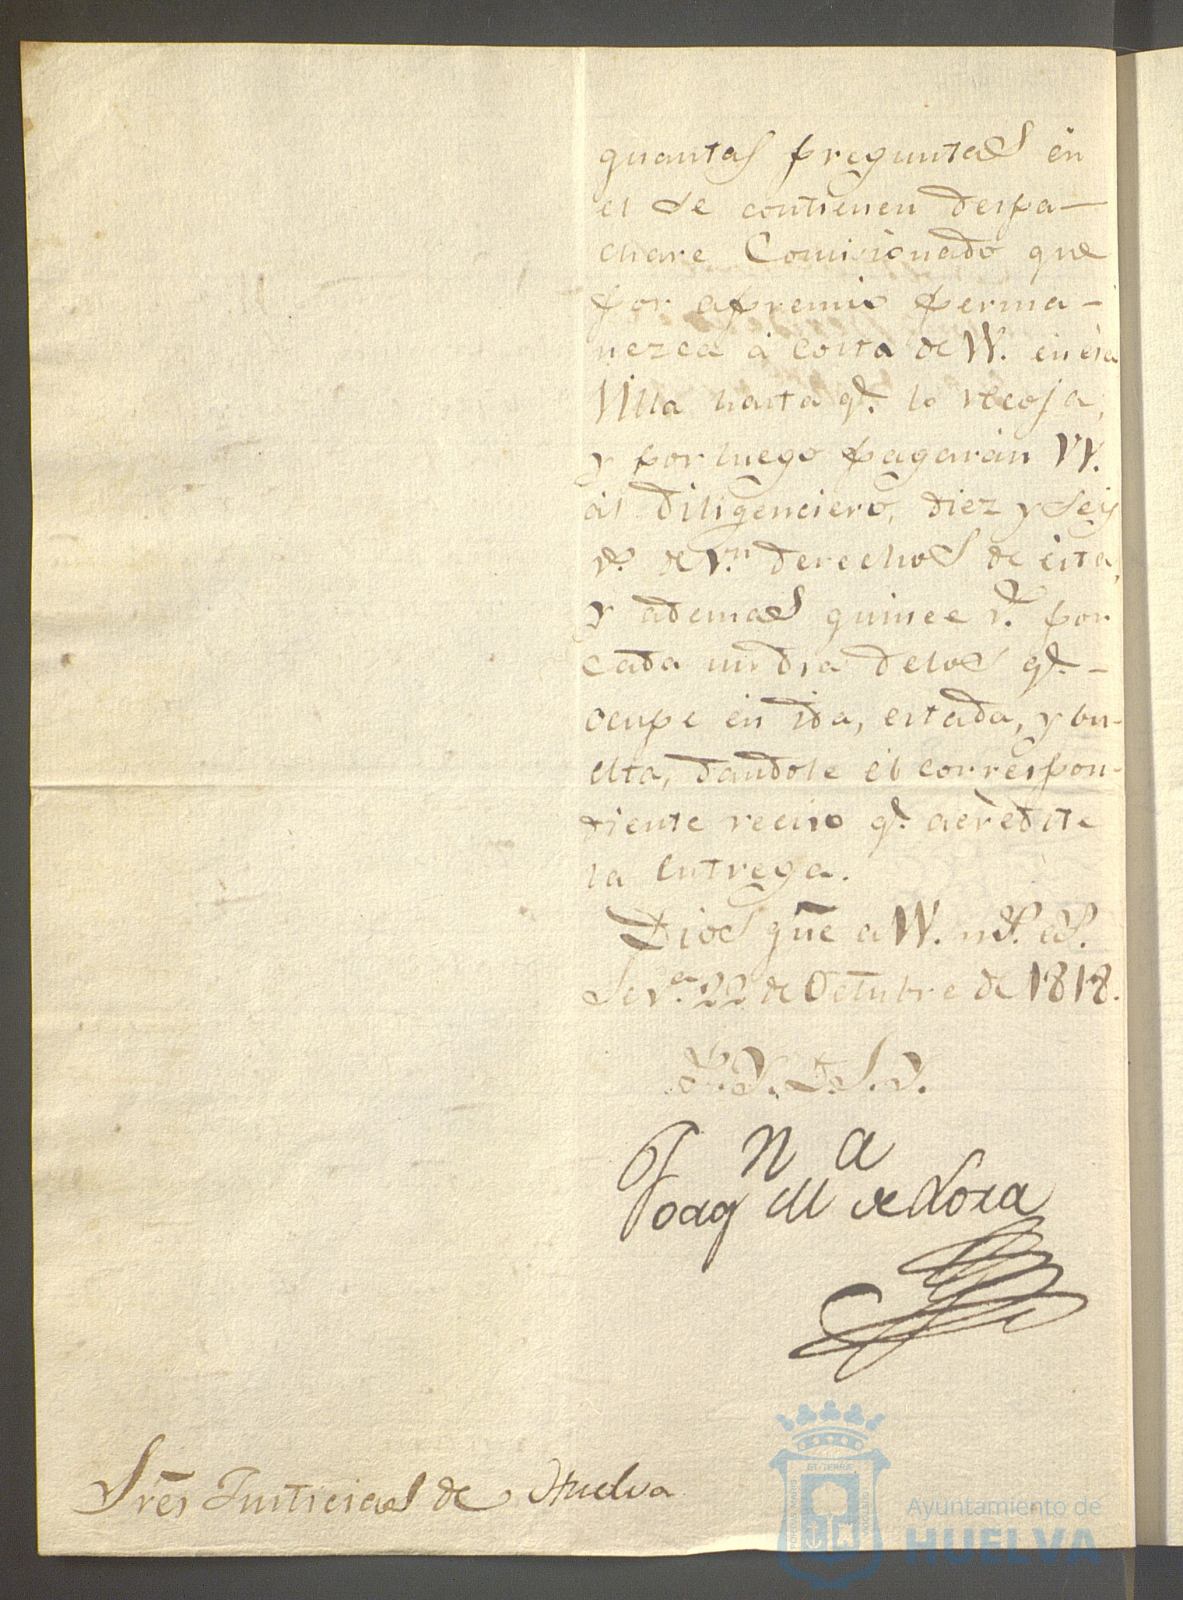 quantas preguntas en
el se contienen despa-
chare Comisionado que
por apremio perma-
nezca à costa de VV. en esa
Villa hasta q.e lo recoja,
y por luego pagarán VV.
al diligenciero, diez y seis
r.s de v.n derechos de esta,
y ademas quince r.s por
cada un dia de los q.e -
ocupe en ida, estada, y bu-
elta, dandole el correspon-
diente recivo q.e acredite
la entrega.
Dios gũe a VV. m.s a.s
Sev.a 22 de Octubre de 1818.
Joaq.n M.a de Lora
Sres Justicias de Huelva
Ayuntamiento de
HUELVA